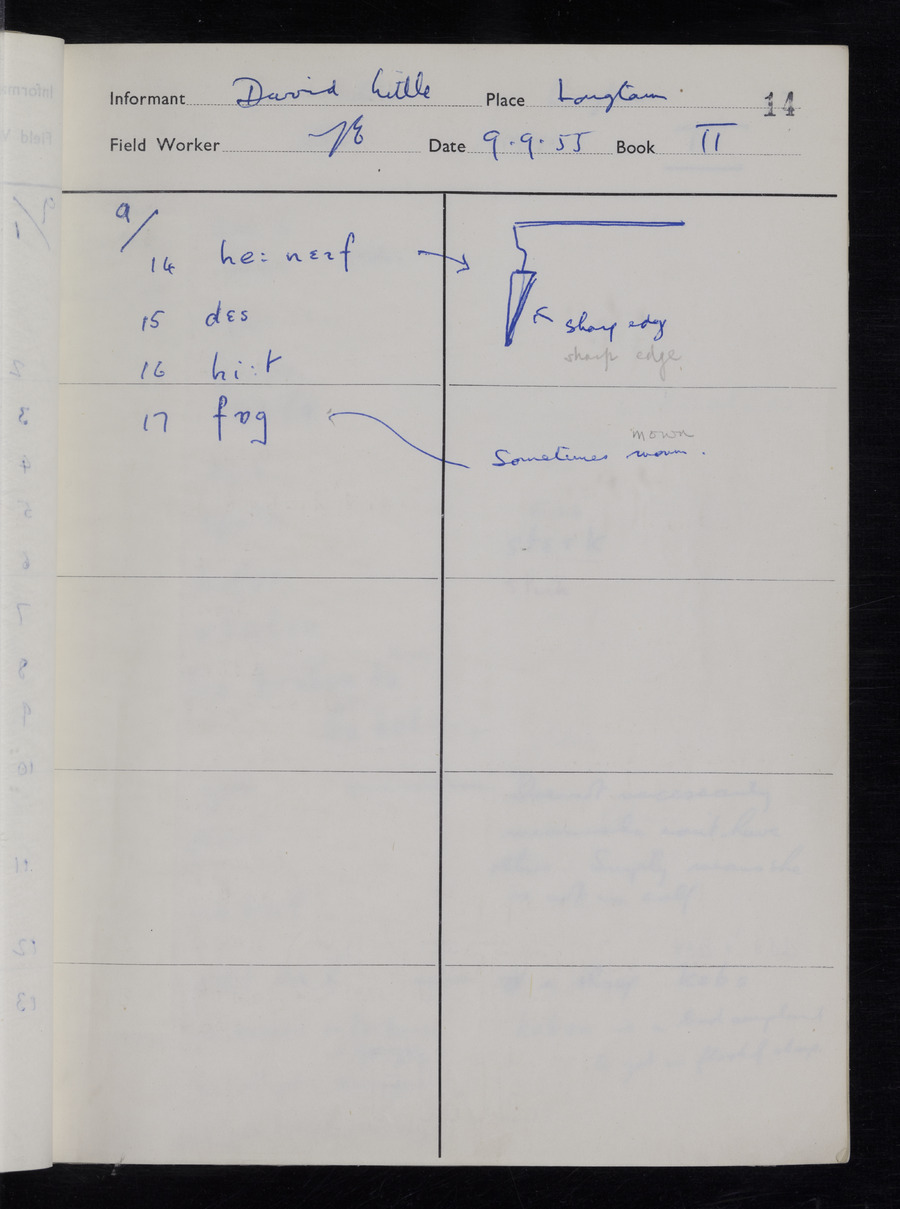 Informant David Little Place Longtown 14
Field Worker Date 9.9.55 Book II
9/
14 he: nɛɪf
15 dɛs
16 hi:t
17 fɒg
sharp edg
sharp edge
mown
Sometimes mown.